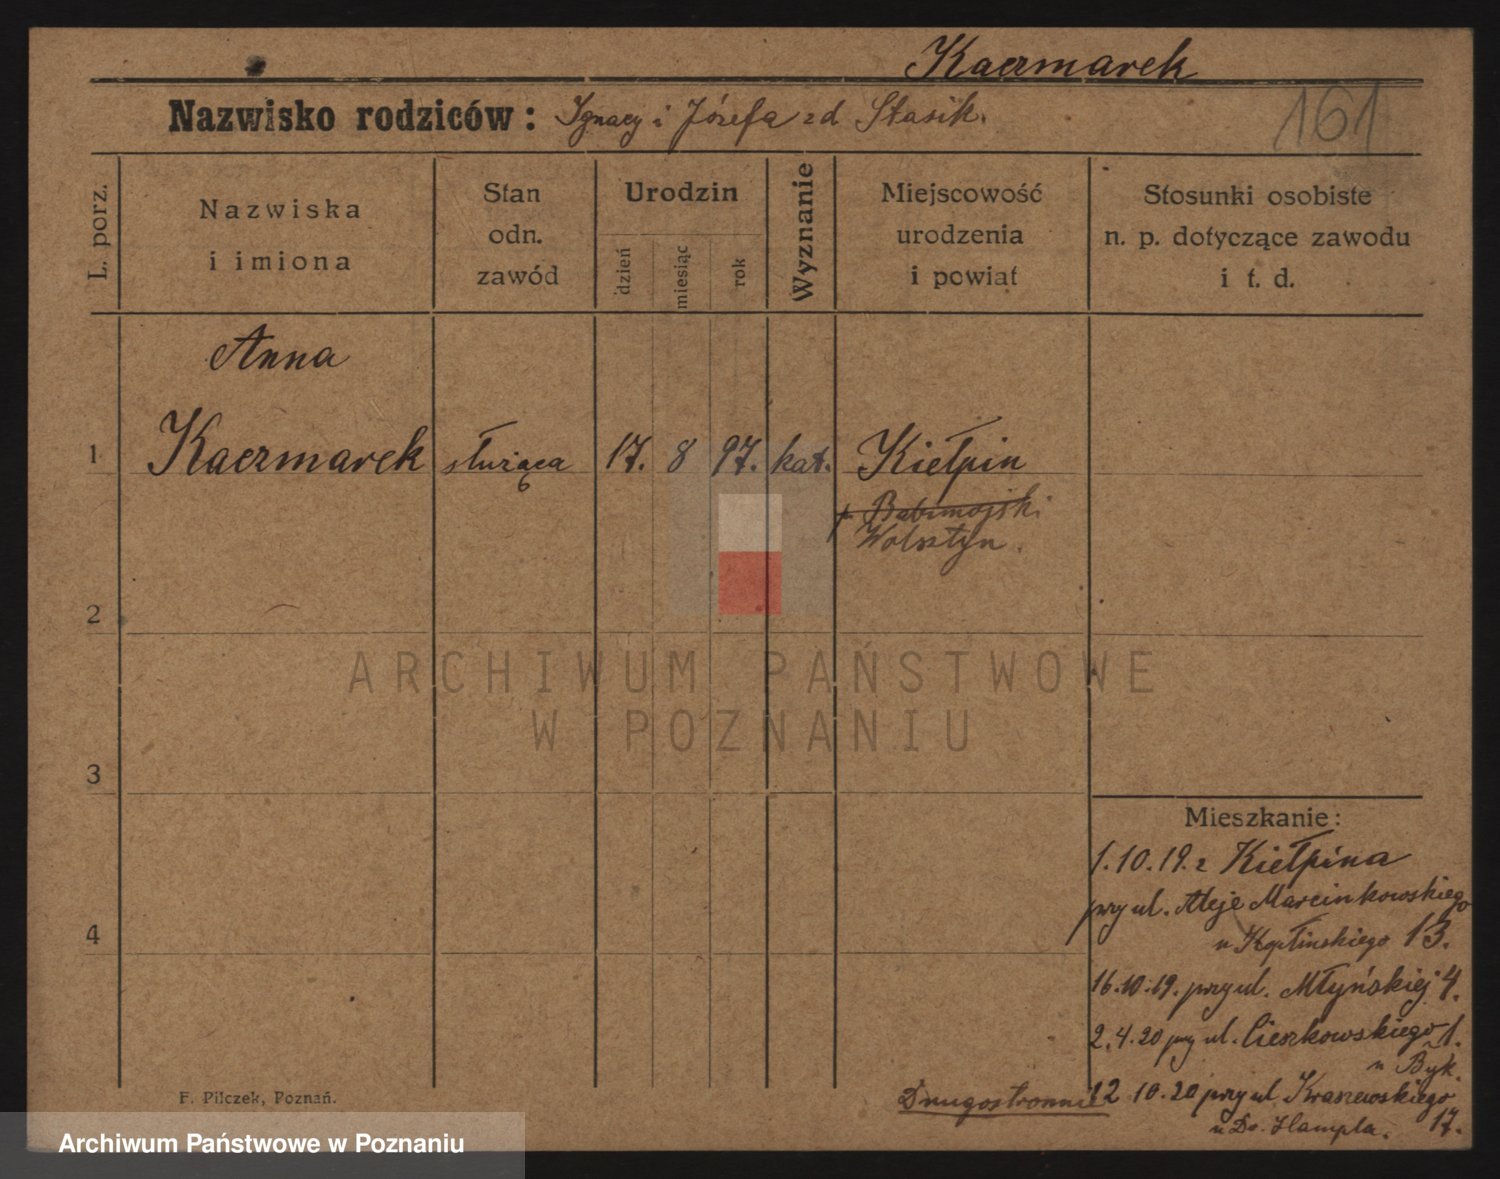 Kaczmarek
Nazwisko rodziców: Ignacy i Józefa zd Stasik.
161
L. porz.
Nazwiska
i imiona
Stan
odn.
zawód
Urodzin
dzień
miesiąc
rok
Wyznanie
Miejscowość
urodzenia
i powiat
Stosunki osobiste
n. p. dotyczące zawodu
i t. d.
Anna
1 Kaczmarek służąca 17. 8 97. kat. Kiełpin
p. Babimojski
Wolsztyn.
2
ARCHIWUM PAŃSTWOWE
W POZNANIU
3
Mieszkanie:
1.10.19. z Kiełpina
przy ul. Aleje Marcinkowskiego
u 13.
4
16.10.19. przy ul. Młyńskiej 4.
2.4.20 przy ul. Cieszkowskiego 1.
u Byk.
Drugostronnie 12 10.20 przy ul Kraszewskiego
u Dr. Hampla. 17.
F. Pilczek, Poznań.
Archiwum Państwowe w Poznaniu